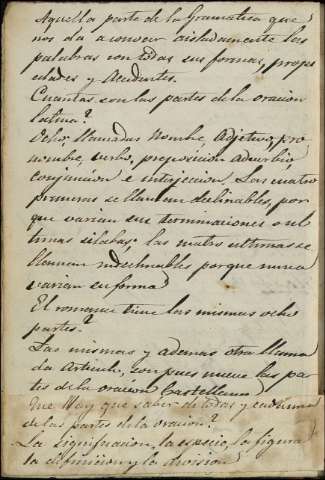 Aquella parte de la Gramatica que
nos da a conocer aisladamente las
palabras con todas sus formas, propie
dades y Accidentes.
Cuantas son las partes de la oracion
latina?
Ocho, llamadas Nombre, Adjetivo, pro
nombre, verbo, preposición adverbio
conjuncion é interjecion. Las cuatro
primeras se llaman declinables, por
que varian sus terminaciones o ul
timas silabas; las cuatro ultimas se
llaman indeclinables porque nunca
varian su forma
El romance tiene las mismas ocho
partes?
Las mismas y ademas otra llama
da Articulo, son pues nueve las par
tes de la oracion Castellana
Que Hay que saber de todas y cada una
de las partes de la oracion?
La significacion, la especie, la figura
la definicion y la division